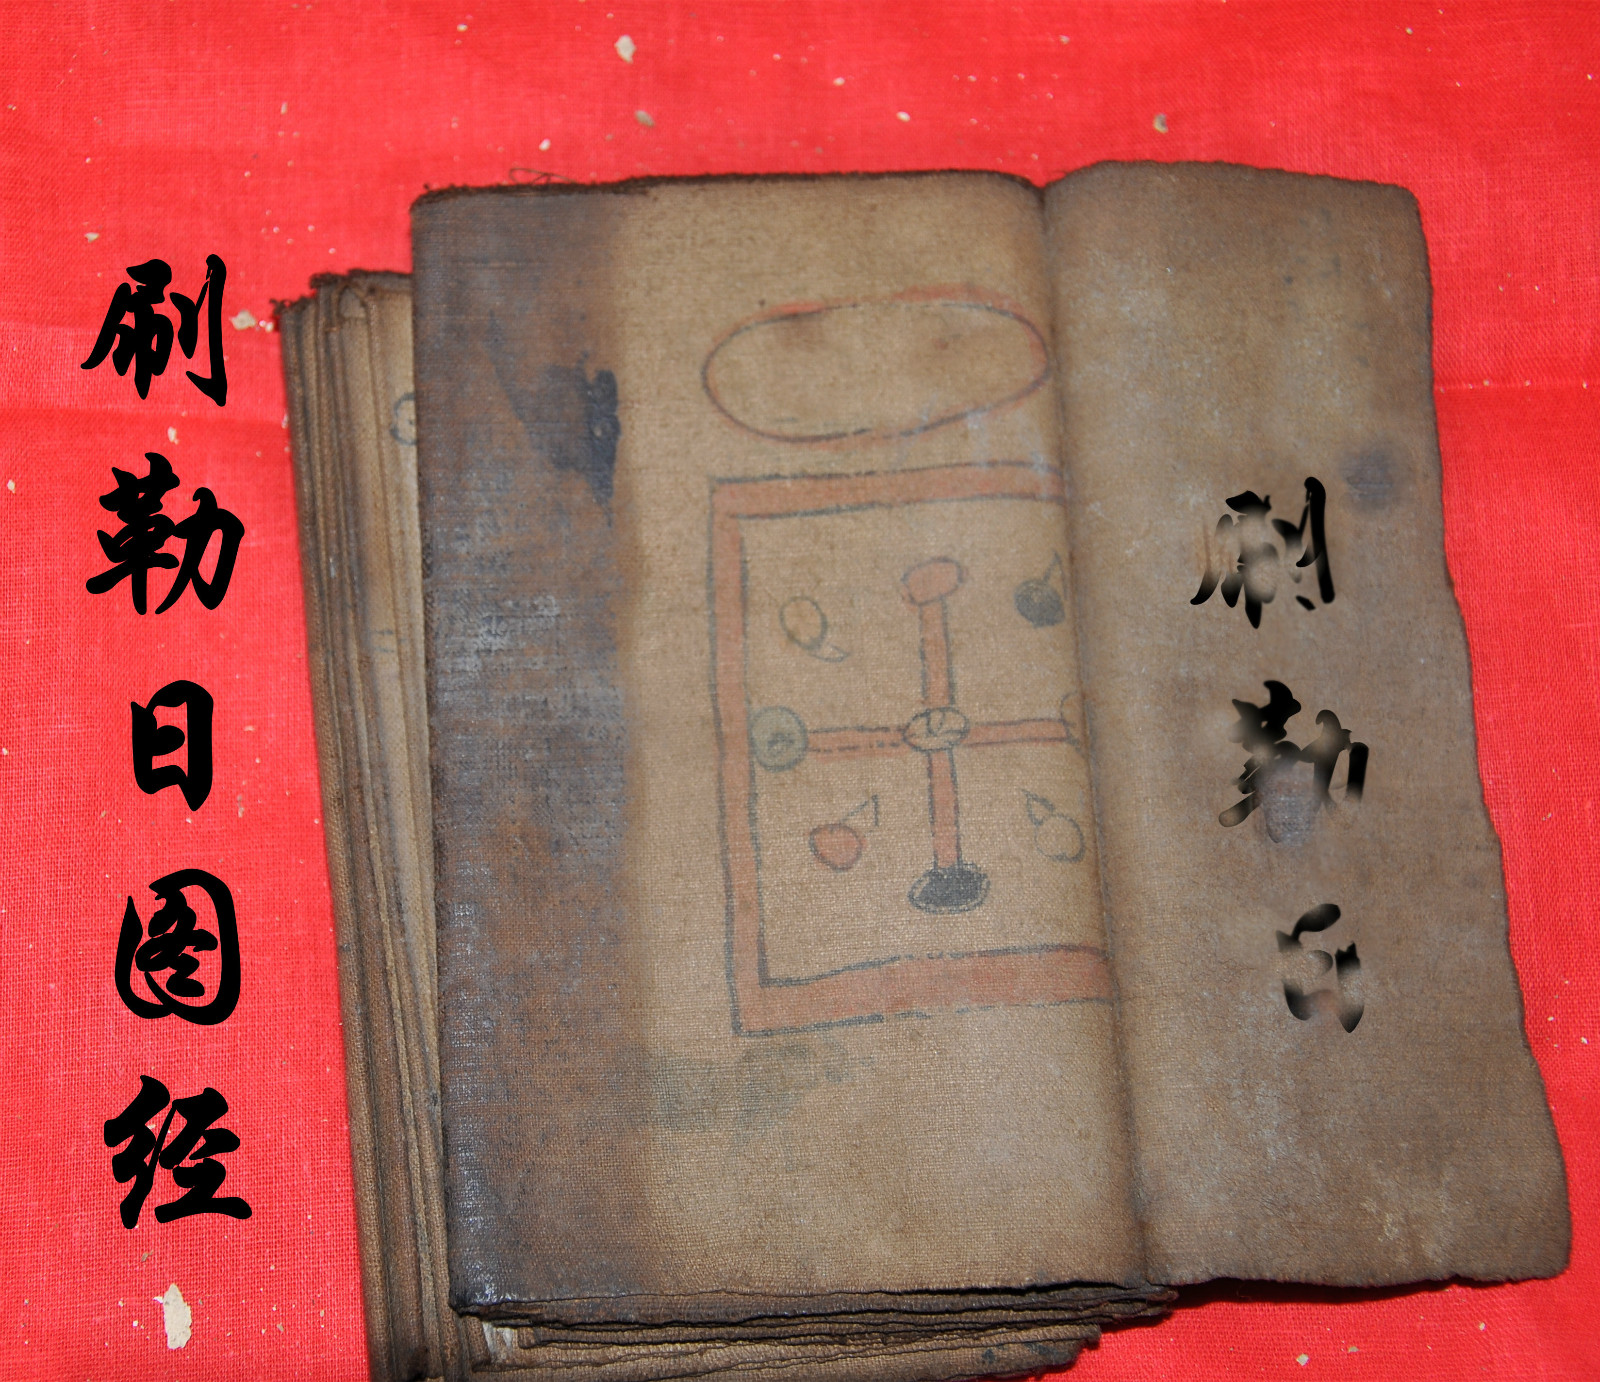 刷勒日图经
刷勒日